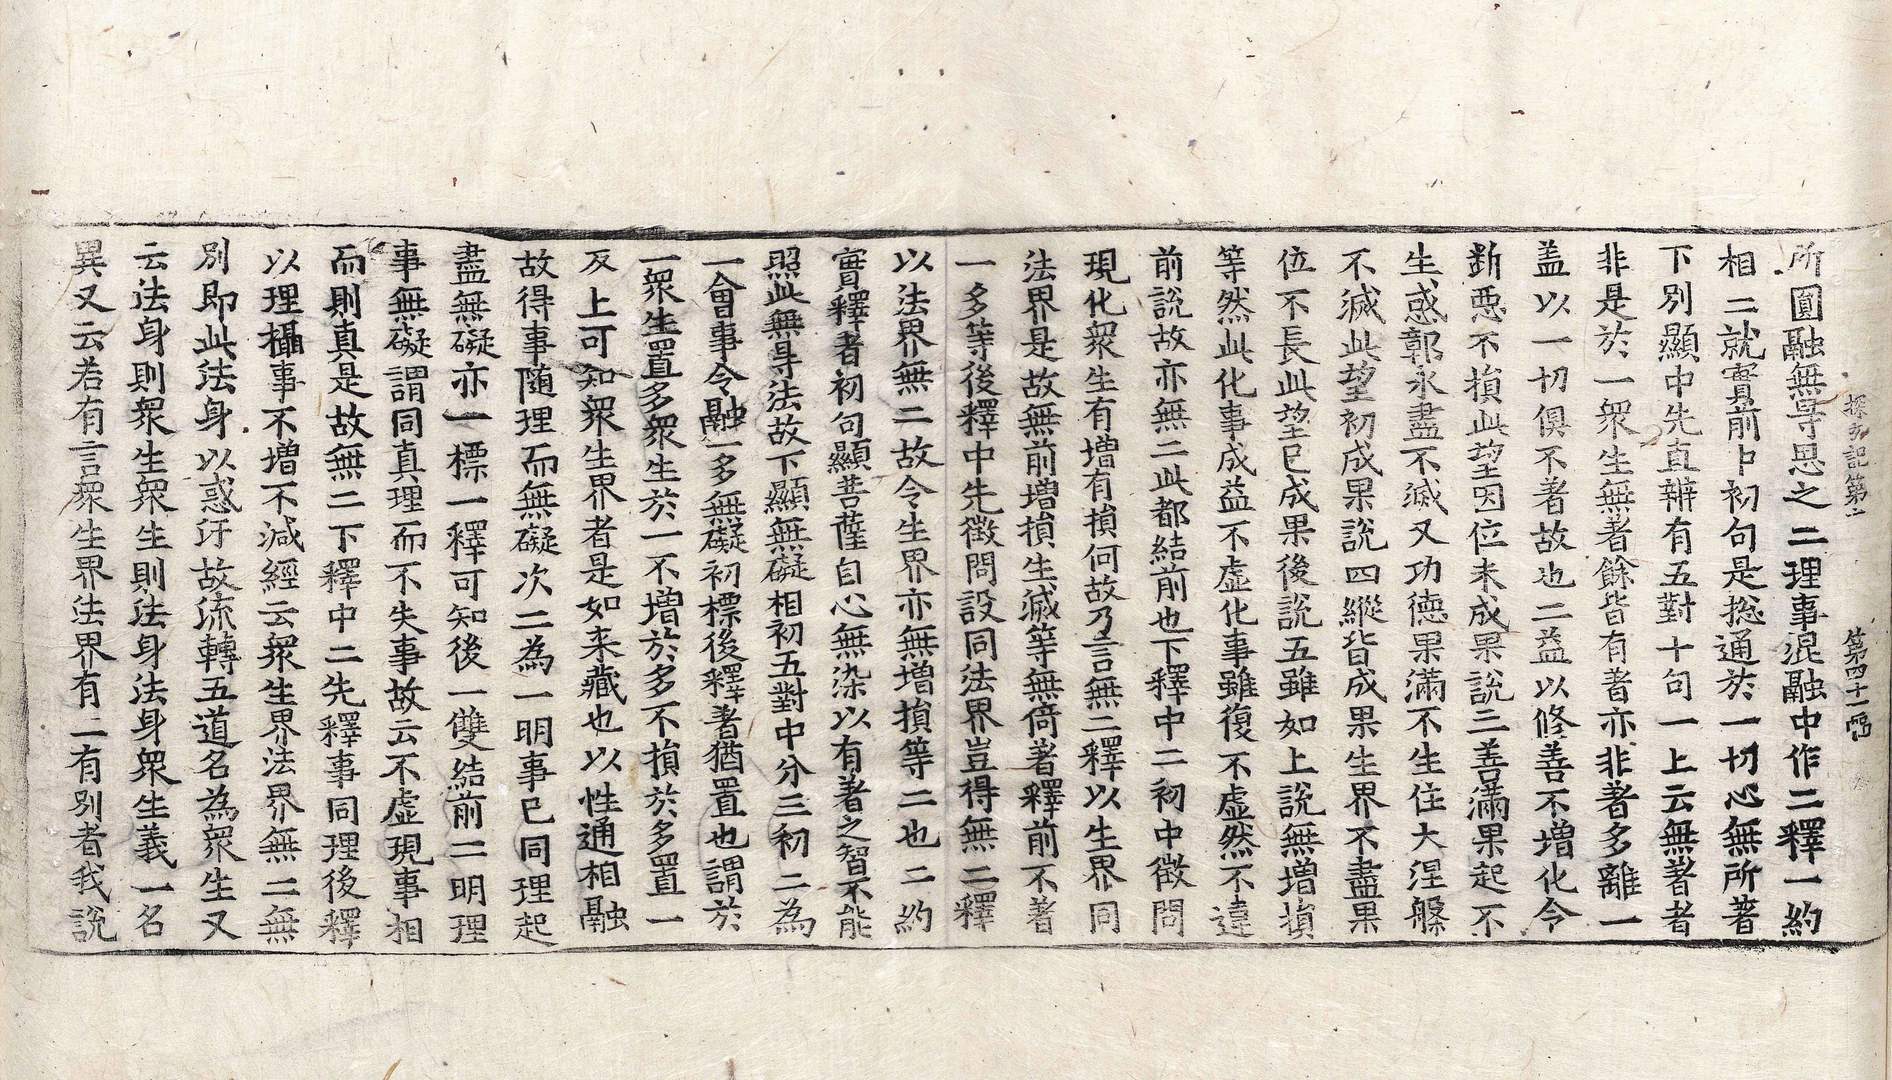 探玄記第二 第四十一幅
所圓融無㝵思之 二理事混融中作二釋一約
相二就實前中初句是揔通於一切心無所著
下別顯中先直辨有五對十句一上云無著者
非是於一衆生無著餘皆有著亦非著多離一
盖以一切俱不著故也二益以修善不增化今
斷惡不損此望因位未成果說三善滿果起不
生惑鄣永盡不滅又功德果滿不生住大涅槃
不滅此望初成果說四縱皆成果生界不盡果
位不長此望已成果後說五雖如上說無增損
等然此化事成益不虛化事雖復不虛然不違
前說故亦無二此都結前也下釋中二初中徵問
現化衆生有增有損何故乃言無二釋以生界同
法界是故無前增損生滅等無倚著釋前不著
一多等後釋中先徵問設同法界豈得無二釋
以法界無二故令生界亦無增損等二也二約
實釋者初句顯菩薩自心無染以有著之智不能
照此無㝵法故下顯無礙相初五對中分三初二為
一會事令融一多無礙初標後釋著猶置也謂於
一衆生置多衆生於一不增於多不損於多置一
反上可知衆生界者是如来藏也以性通相融
故得事随理而無礙次二為一明事已同理起
盡無礙亦一標一釋可知後一雙結前二明理
事無礙謂同真理而不失事故云不虛現事相
而則真是故無二下釋中二先釋事同理後釋
以理攝事不增不減經云衆生界法界無二無
別即此法身以惑汙故流轉五道名為衆生又
云法身則衆生衆生則法身法身衆生義一名
異又云若有言衆生界法界有二有別者我說